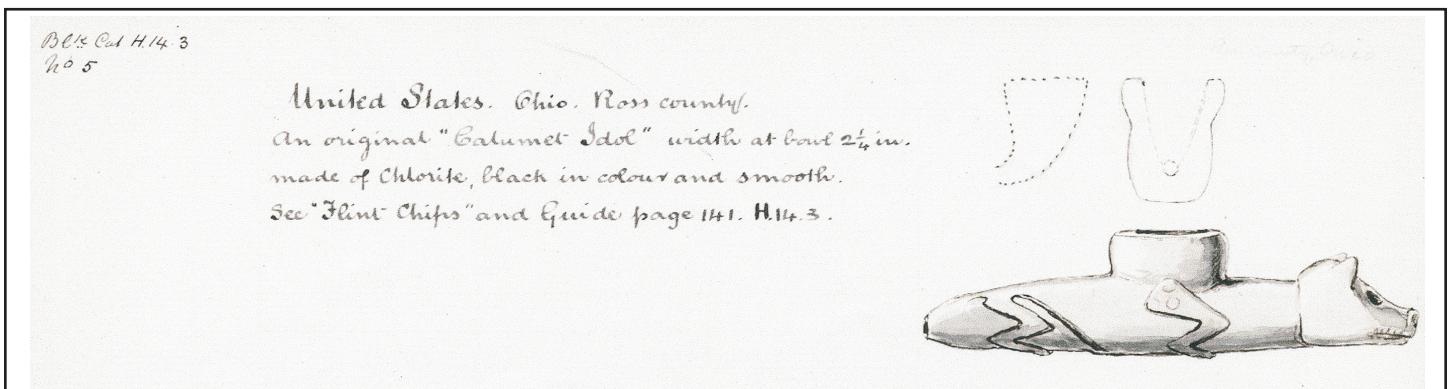 Blk Cat H.14.3
No 5
United States. Ohio. Ross county.
An original "Calumet Idol" width at bowl 2¼ in.
made of Chlorite, black in colour and smooth.
See "Flint Chips" and Guide page 141. H.14.3.